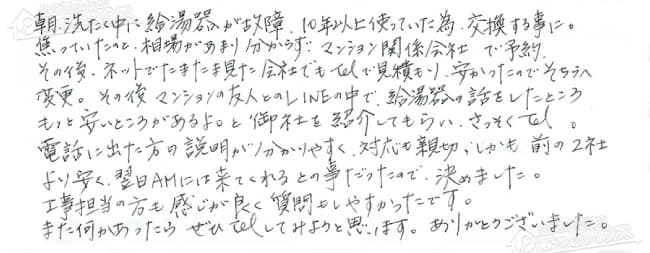 朝、洗たく中に給湯器が故障、10年以上使っていた為、交換する事に。
焦っていたのと、相場があまり分からず、マンション関係会社で予約。
その後、ネットでたまたま見た会社でもtelで見積もり、安かったのでそちらへ
変更。その後マンションの友人とのLINEの中で、給湯器の話をしたところ
もっと安いところがあるよ。と御社を紹介してもらい、さっそくtel。
電話に出た方の説明が分かりやすく、対応も親切、しかも前の2社
より安く、翌日AMには来てくれるとの事だったので、決めました。
工事担当の方も感じが良く質問もしやすかったです。
また何かあったらぜひtelしてみようと思います。ありがとうございました。